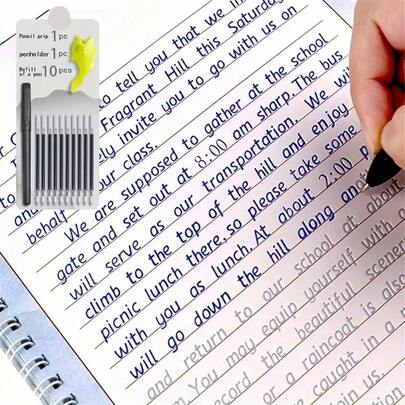 Pencil grip 1 pc
penholder 1 pc
Refill of a pen 10 pcs
to tell you that we
Fragrant Hill this Saturday
invite you to go with us on
behalf our class.
We are supposed to gather at the school
gate and set out at 8:00 am sharp. The bus
will serve as our transportation. We
climb to the top of the hill and enjoy
picnic lunch there, so please take some
with you as lunch. At about 2:00
will go down the hill along
and return to our school at about
You may equip yourself with
record the beautiful
or a raincoat is also
caught in a
join us.